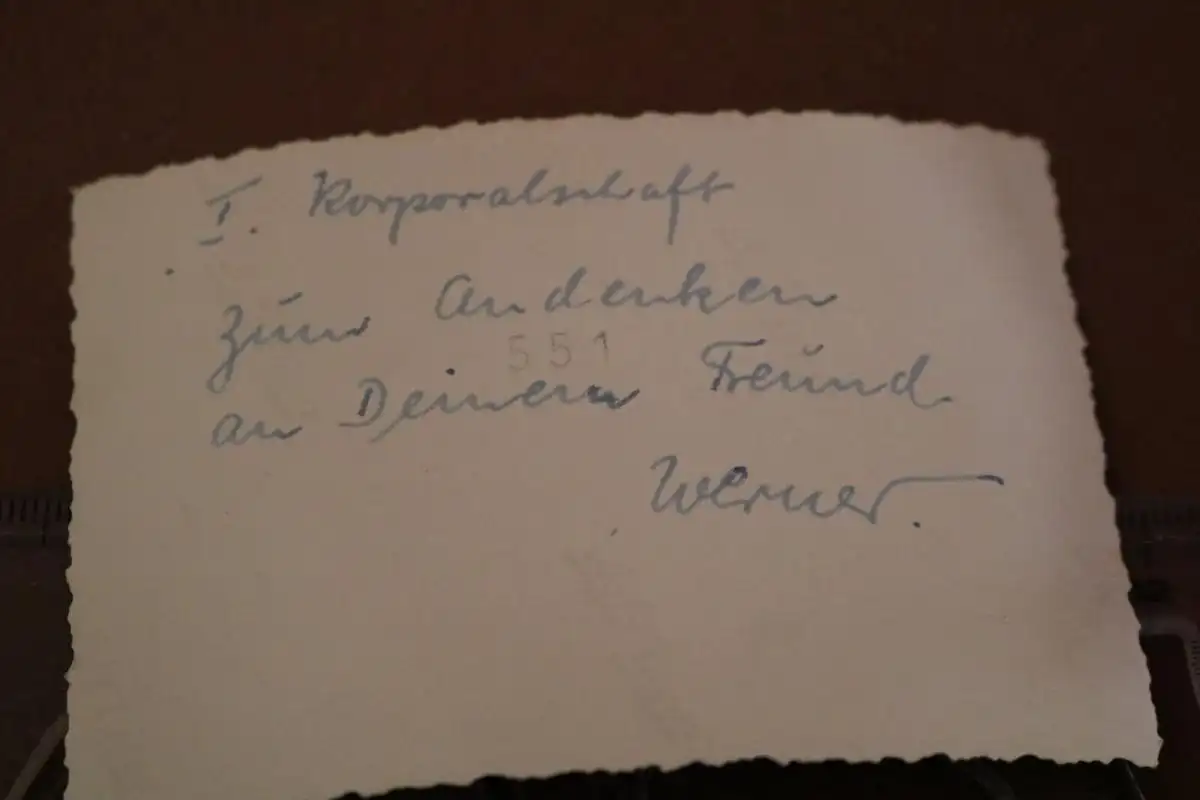 I. Korporalschaft
Zum Andenken
551
an Deinem Freund
Werner.